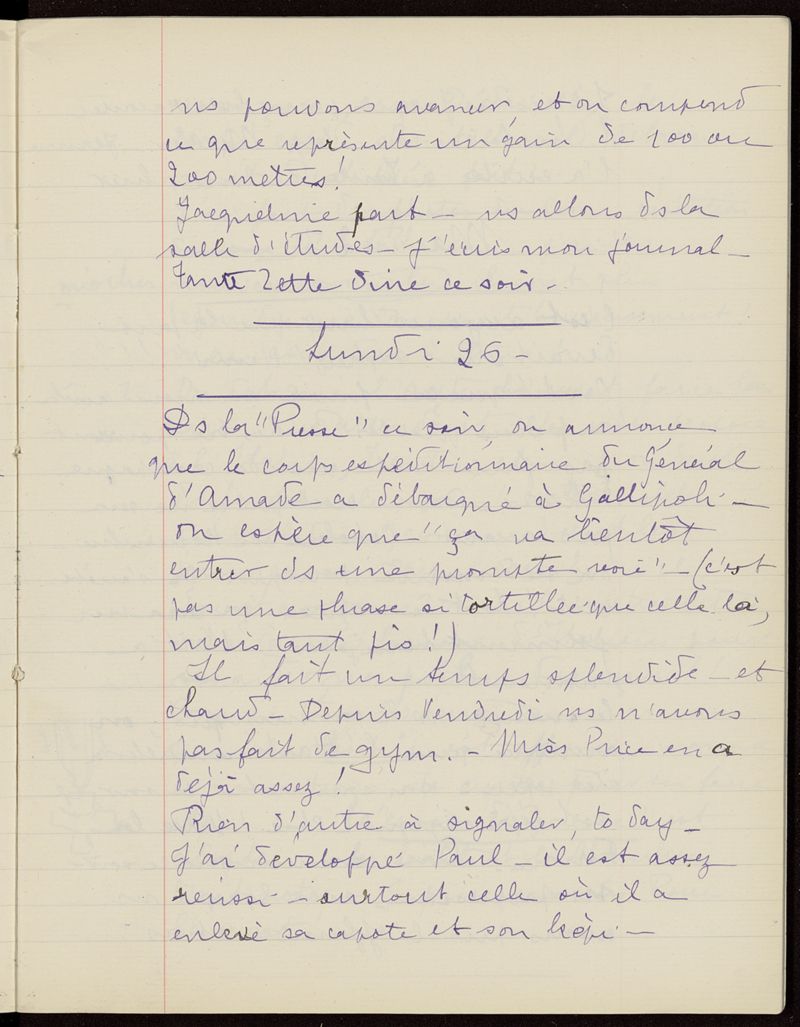 ns pouvons avancer, et on comprend
ce que représente un gain de 100 ou
200 mètres!
Jacqueline part – ns allons ds la
salle d'études – J'écris mon journal –
Tante Zette dine ce soir –
Lundi 26 –
Ds la "Presse" ce soir, on annonce
que le corps expéditionnaire du Général
d'Amade a débarqué à Gallipoli –
on espère que "ça va bientôt
entrer ds une prompte voie" – (c'est
pas une phrase si tortillée que celle là,
mais tant pis!)
Il fait un temps splendide – et
chaud – Depuis Vendredi ns n'avons
pas fait de gym. – Miss Price en a
déjà assez!
Rien d'autre à signaler, to day –
J'ai developpé Paul – il est assez
réussi – surtout celle où il a
enlevé sa capote et son képi –